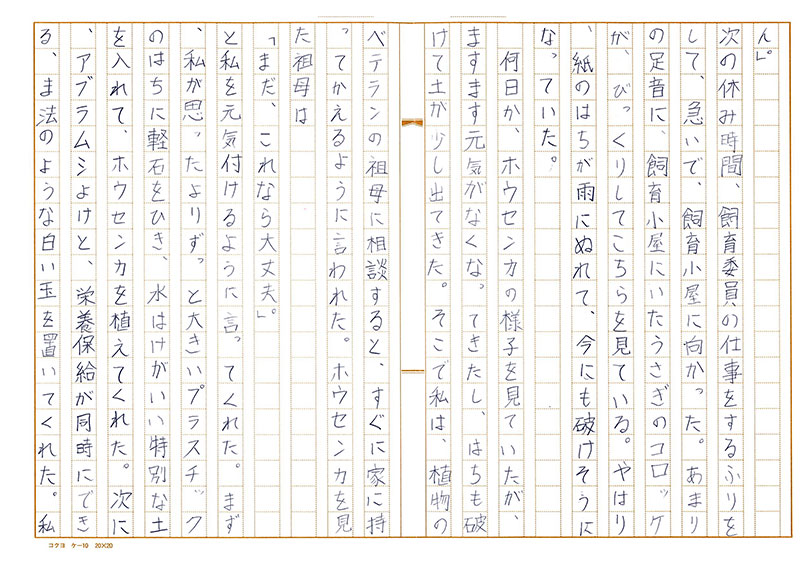 ん」。
次の休み時間、飼育委員の仕事をするふりを
して、急いで、飼育小屋に向かった。あまり
の足音に、飼育小屋にいたうさぎのコロッケ
が、びっくりしてこちらを見ている。やはり
、紙のはちが雨にぬれて、今にも破けそうに
なっていた。
何日か、ホウセンカの様子を見ていたが、
ますます元気がなくなってきたし、はちも破
けて土が少し出てきた。そこで私は、植物の
ベテランの祖母に相談すると、すぐに家に持
ってかえるように言われた。ホウセンカを見
た祖母は
「まだ、これなら大丈夫」。
と私を元気付けるように言ってくれた。まず
、私が思ったよりずっと大きいプラスチック
のはちに軽石をひき、水はけがいい特別な土
を入れて、ホウセンカを植えてくれた。次に
、アブラムシよけと、栄養保給が同時にでき
る、ま法のような白い玉を置いてくれた。私
コクヨ ケー10 20×20